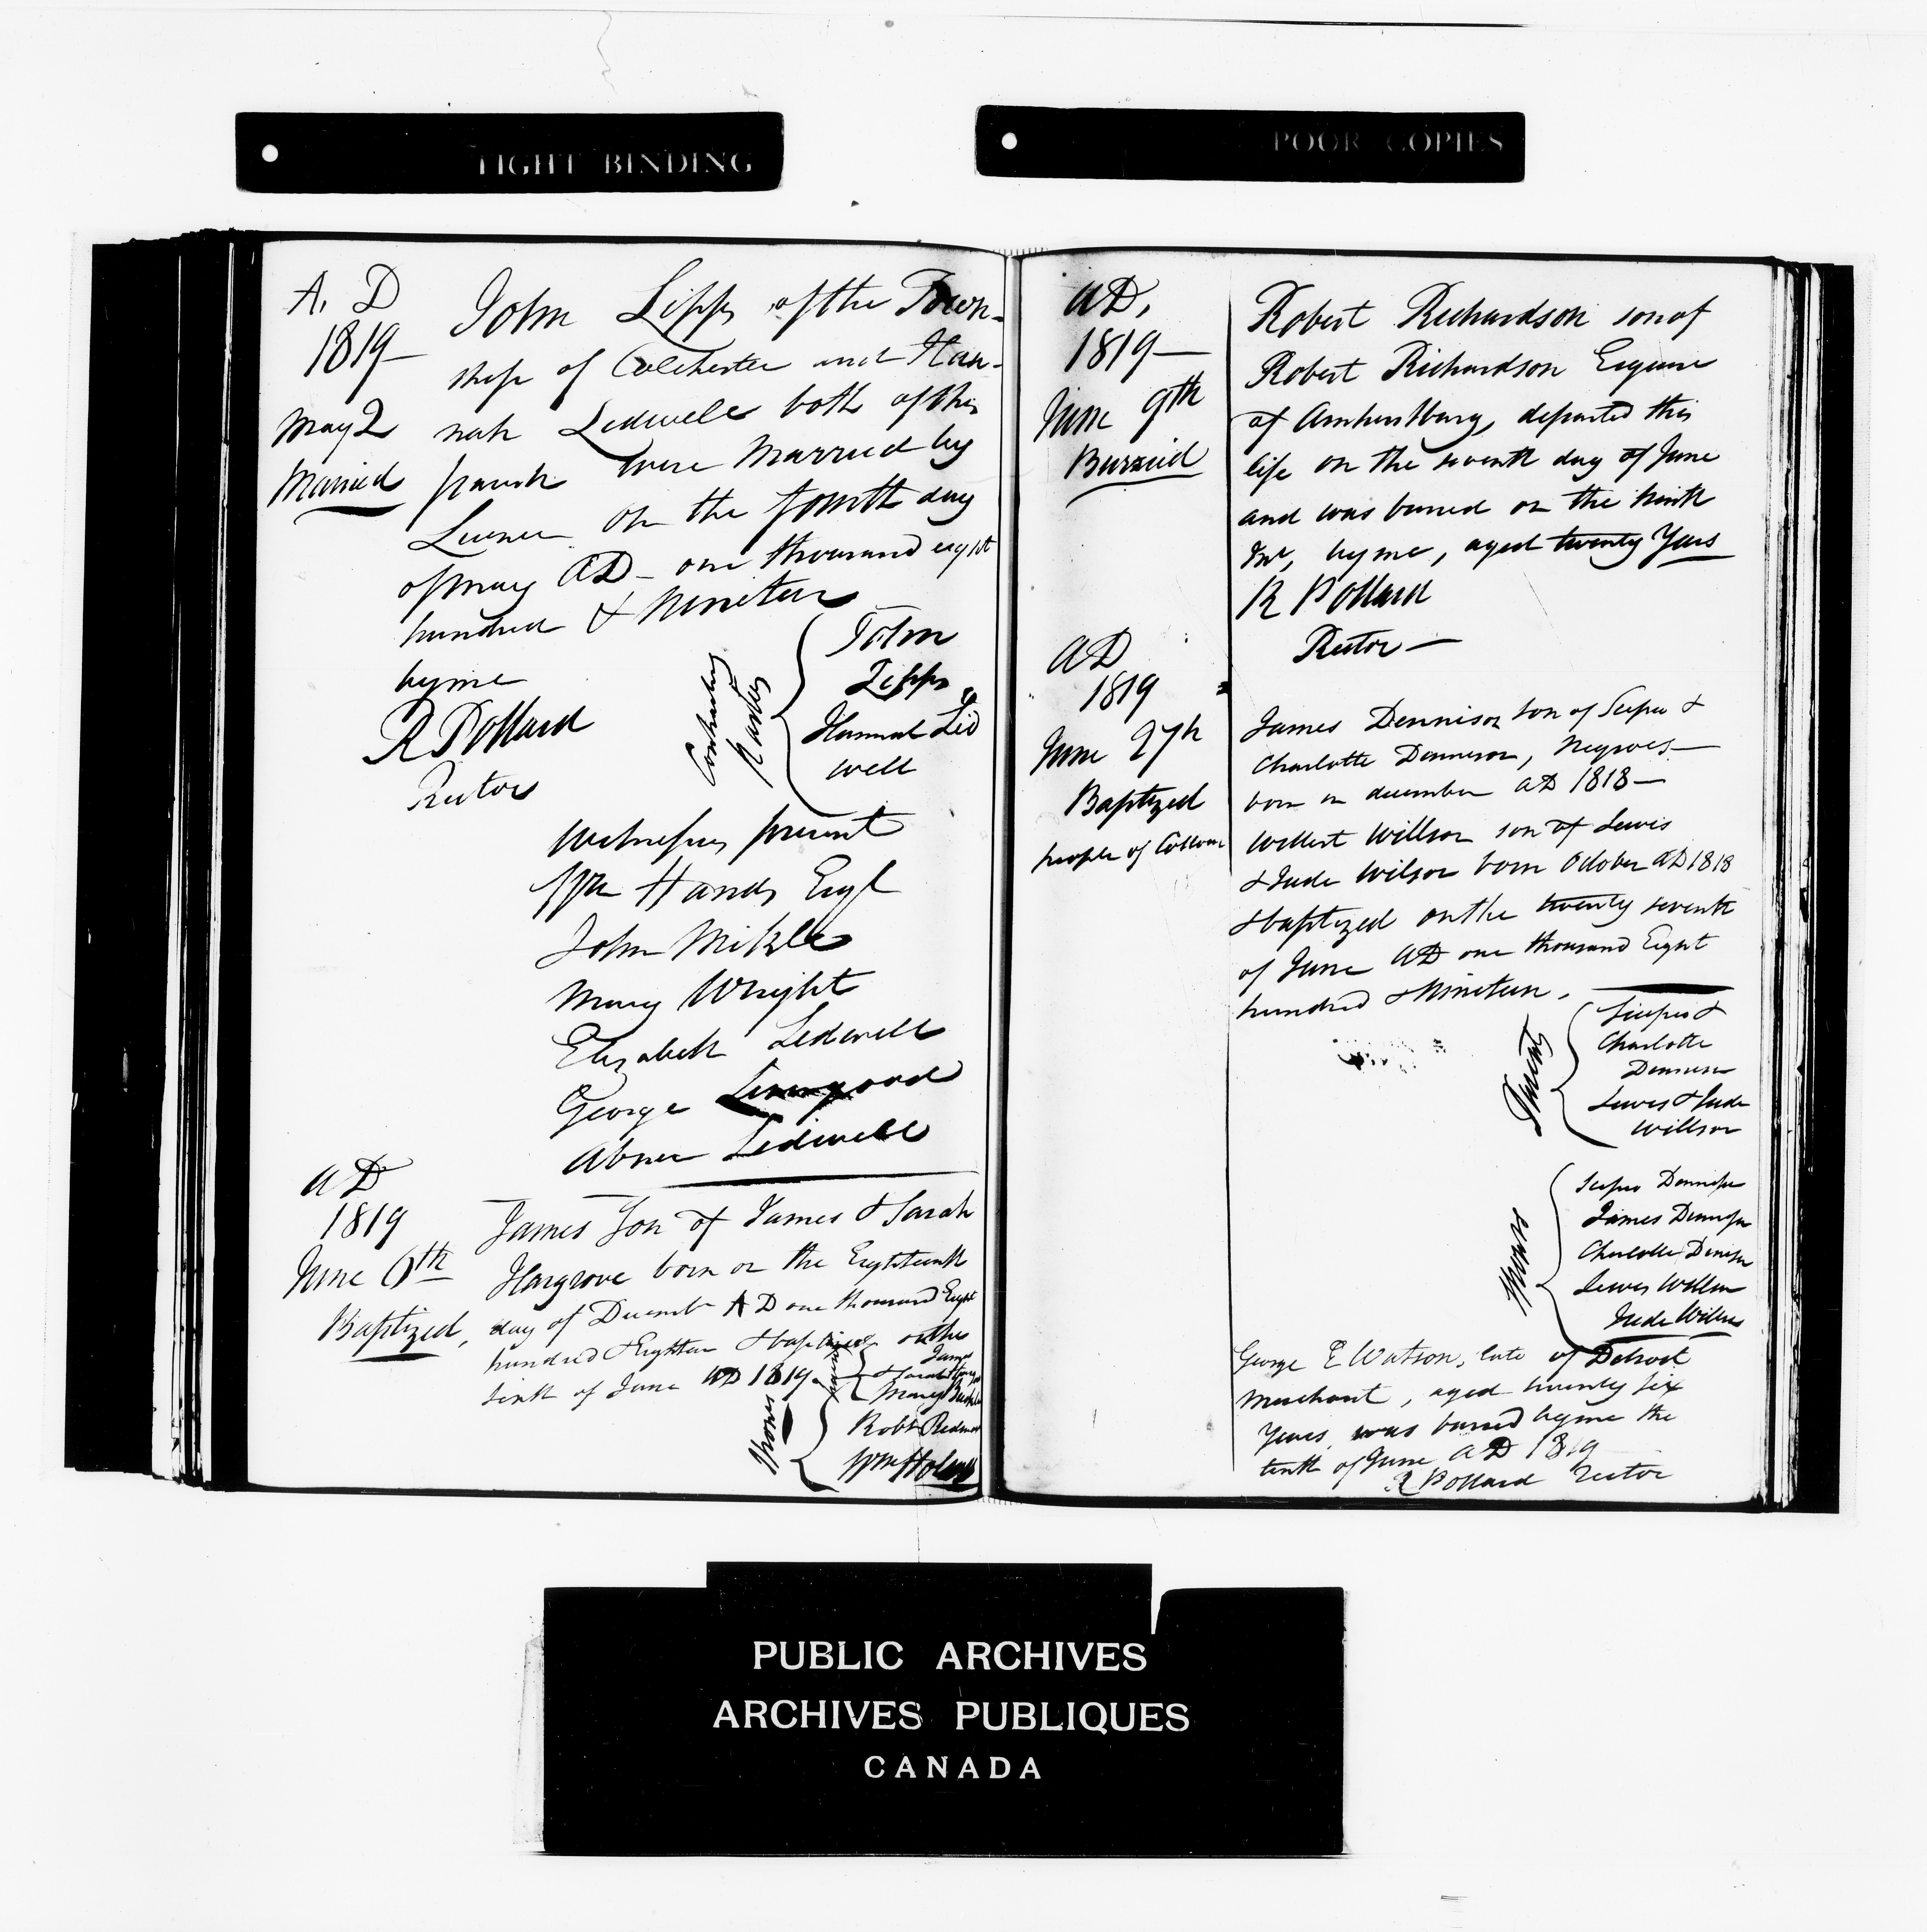 TIGHT BINDING
POOR COPIES
A. D
1819—
May 2
Married
John Lipps of the Town-
ship of Colchester and Han-
nah Ledwell both of this
parish were Married by
Licence on the fourth day
of may AD — one thousand eight
hundred & Nineteen
by me
R Pollard
Rector
Contracting
Parties
John
Lipps &
Hannah Led
well
Witnesses present
Wm Hands Esqr
John Mikle
Mary Wright
Elizabeth Ledwell
George
Abner Ledwell
AD
1819
June 6th
Baptized,
James Son of James & Sarah
Hargrove born on the Eighteenth
day of Decembr AD one thousand Eight
hundred & Eighteen & baptized on the
sixth of June AD 1819.
Parents
James
& Sarah
Sponsors
Mary
Robt
Wm Holmes
AD,
1819—
June 9th
Burried
Robert Richardson son of
Robert Richardson Esquire
of Amherstburg, departed this
life on the seventh day of June
and was buried on the ninth
Int, by me, aged twenty Years
R Pollard
Rector —
AD
1819
June 27th
Baptized
people of Colour
James Dennison son of Scipio &
Charlotte Dennison, Negroes—
born in december AD 1818—
Willert Willson son of Lewis
& Jude Wilson born October AD 1818
& baptized on the twenty seventh
of June AD one thousand Eight
hundred & Nineteen.
Parents
Scipio &
Charlotte
Dennison
Lewis & Jude
Willson
Sponsors
Scipio Dennison
James Dennison
Charlotte Dennison
Lewis Willson
Jude Willson
George E Watson, late of Detroit
Merchant, aged twenty six
Years, was buried by me the
tenth of June AD 1819
R Pollard rector
PUBLIC ARCHIVES
ARCHIVES PUBLIQUES
CANADA